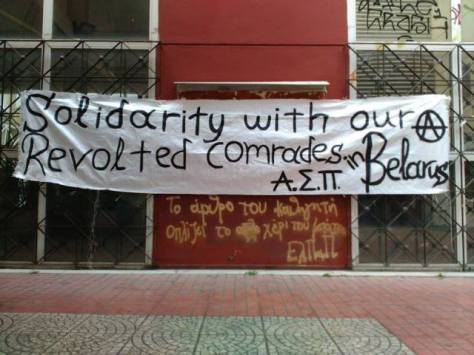 Solidarity with our Ⓐ
Revolted comrades in Belarus
Α.Σ.Π.
Το άρθρο του καθηγητή
οπλίζει το χέρι του